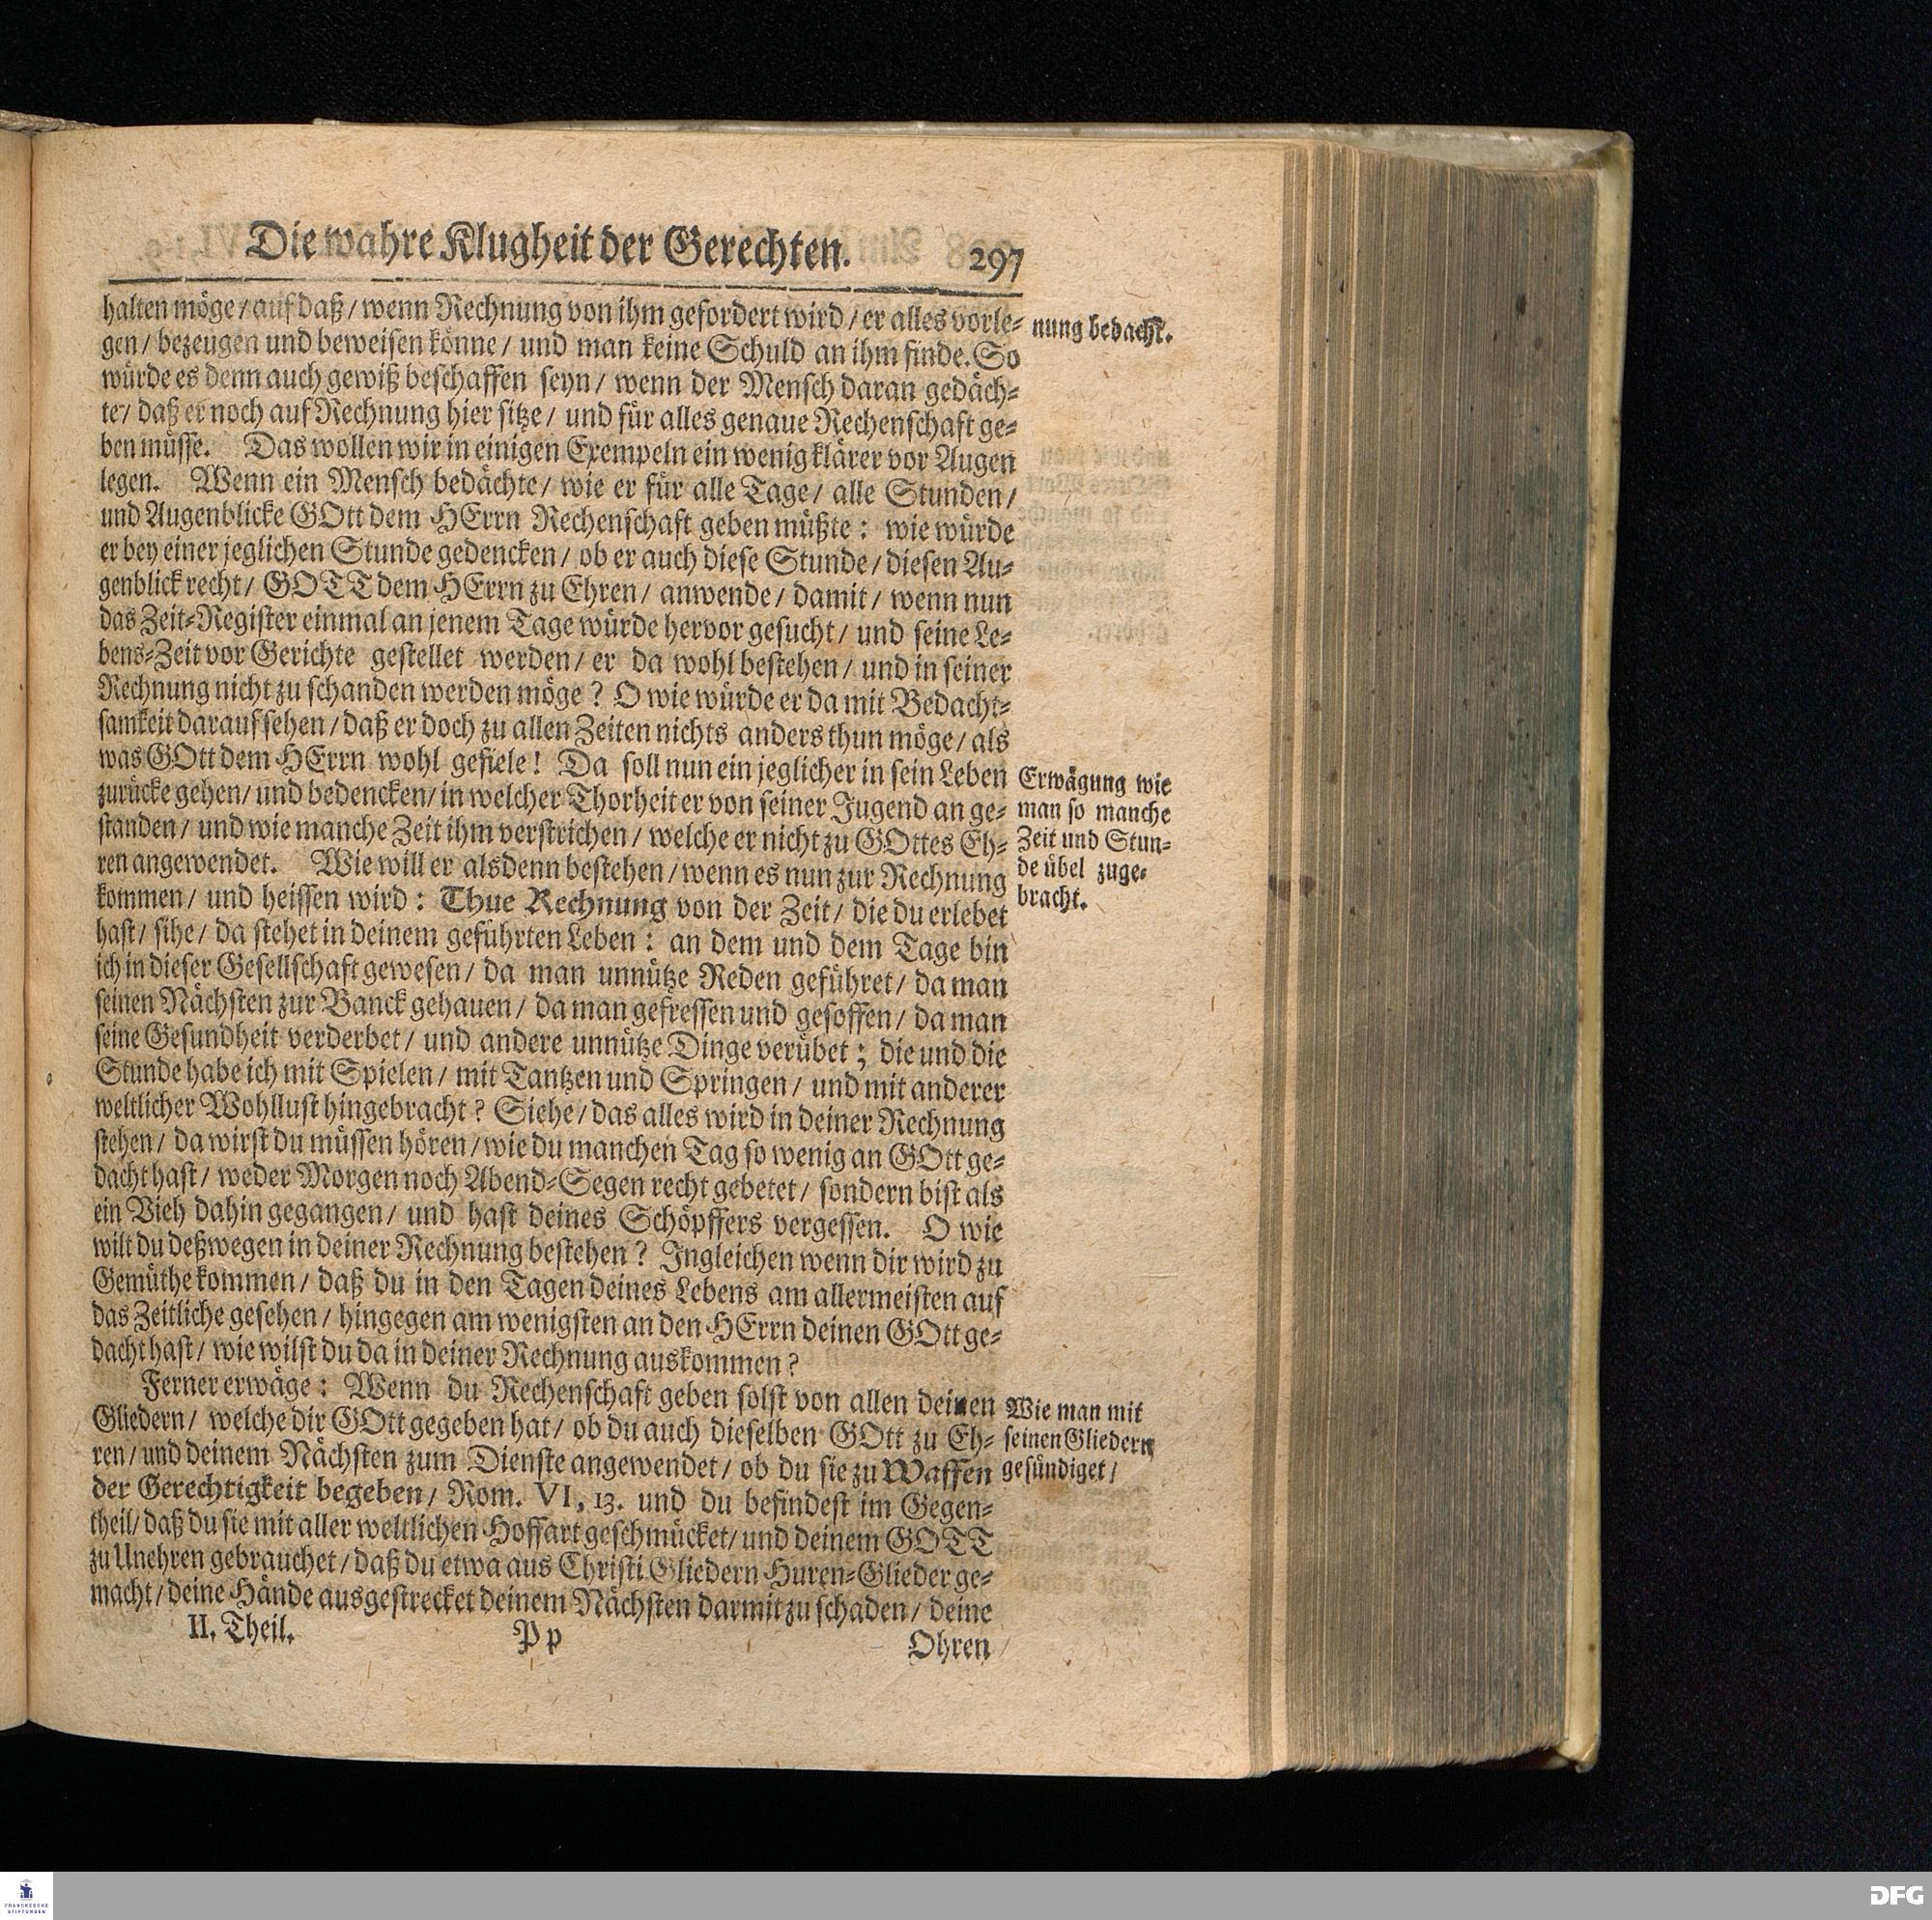 Die wahre Klugheit der Gerechten. 297
halten möge / auf daß / wenn Rechnung von ihm gefordert wird / er alles vorle-
gen / bezeugen und beweisen könne / und man keine Schuld an ihm finde. So
würde es denn auch gewiß beschaffen seyn / wenn der Mensch daran gedäch-
te / daß er noch auf Rechnung hier sitze / und für alles genaue Rechenschaft ge-
ben müsse. Das wollen wir in einigen Exempeln ein wenig klärer vor Augen
legen. Wenn ein Mensch bedächte / wie er für alle Tage / alle Stunden /
und Augenblicke GOtt dem HErrn Rechenschaft geben müßte : wie würde
er bey einer jeglichen Stunde gedencken / ob er auch diese Stunde / diesen Au-
genblick recht / GOTT dem HErrn zu Ehren / anwende / damit / wenn nun
das Zeit-Register einmal an jenem Tage würde hervor gesucht / und seine Le-
bens-Zeit vor Gerichte gestellet werden / er da wohl bestehen / und in seiner
Rechnung nicht zu schanden werden möge ? O wie würde er da mit Bedacht-
samkeit darauf sehen / daß er doch zu allen Zeiten nichts anders thun möge / als
was GOtt dem HErrn wohl gefiele ! Da soll nun ein jeglicher in sein Leben
zurücke gehen / und bedencken / in welcher Thorheit er von seiner Jugend an ge-
standen / und wie manche Zeit ihm verstrichen / welche er nicht zu GOttes Eh-
ren angewendet. Wie will er alsdenn bestehen / wenn es nun zur Rechnung
kommen / und heissen wird : Thue Rechnung von der Zeit / die du erlebet
hast / sihe / da stehet in deinem geführten Leben : an dem und dem Tage bin
ich in dieser Gesellschaft gewesen / da man unnütze Reden geführet / da man
seinen Nächsten zur Banck gehauen / da man gefressen und gesoffen / da man
seine Gesundheit verderbet / und andere unnütze Dinge verübet ; die und die
Stunde habe ich mit Spielen / mit Tantzen und Springen / und mit anderer
weltlicher Wohllust hingebracht ? Siehe / das alles wird in deiner Rechnung
stehen / da wirst du müssen hören / wie du manchen Tag so wenig an GOtt ge-
dacht hast / weder Morgen noch Abend-Segen recht gebetet / sondern bist als
ein Vieh dahin gegangen / und hast deines Schöpffers vergessen. O wie
wilt du deßwegen in deiner Rechnung bestehen ? Ingleichen wenn dir wird zu
Gemüthe kommen / daß du in den Tagen deines Lebens am allermeisten auf
das Zeitliche gesehen / hingegen am wenigsten an den HErrn deinen GOtt ge-
dacht hast / wie wilst du da in deiner Rechnung auskommen ?
Ferner erwäge : Wenn du Rechenschaft geben solst von allen deinen
Gliedern / welche dir GOtt gegeben hat / ob du auch dieselben GOtt zu Eh-
ren / und deinem Nächsten zum Dienste angewendet / ob du sie zu Waffen
der Gerechtigkeit begeben / Rom. VI, 13. und du befindest im Gegen-
theil / daß du sie mit aller weltlichen Hoffart geschmücket / und deinem GOTT
zu Unehren gebrauchet / daß du etwa aus Christi Gliedern Huren-Glieder ge-
macht / deine Hände ausgestrecket deinem Nächsten darmit zu schaden / deine
II. Theil. Pp Ohren
nung bedacht.
Erwägung wie
man so manche
Zeit und Stun-
de übel zuge-
bracht.
Wie man mit
seinen Gliedern
gesündiget /
FRANCKESCHE
STIFTUNGEN
DFG